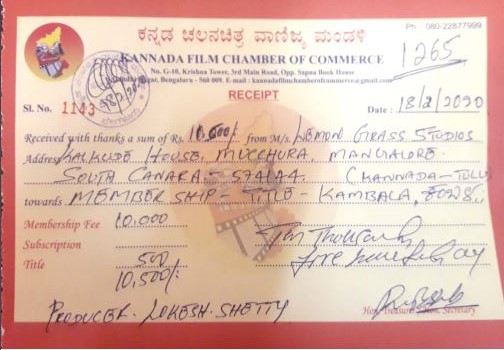 ಕನ್ನಡ ಚಲನಚಿತ್ರ ವಾಣಿಜ್ಯ ಮಂಡಳಿ
Ph 080-22877999
KANNADA FILM CHAMBER OF COMMERCE
1265
No. G-10, Krishna Tower, 3rd Main Road, Opp. Sapna Book House
Gandhinagar, Bengaluru - 560 009. E-mail : kannadafilmchamberofcommerce@gmail.com
RECEIPT
Sl. No. 1143
Date : 18/2/2020
Received with thanks a sum of Rs. 10,500/- from M/s. LEMON GRASS STUDIOS
Address KALKUDE HOUSE, MUCCHURA, MANGALORE-
SOUTH CANARA - 574144 (KANNADA - TULU
towards MEMBER SHIP - TITLE - KAMBALA, ಕಂಬಳ
Membership Fee 10,000
Ten Thousands
Subscription
five hundred only
Title 500
10,500/-
PRODUCER. LOKESH. SHETTY
Hon. Treasurer / Hon. Secretary